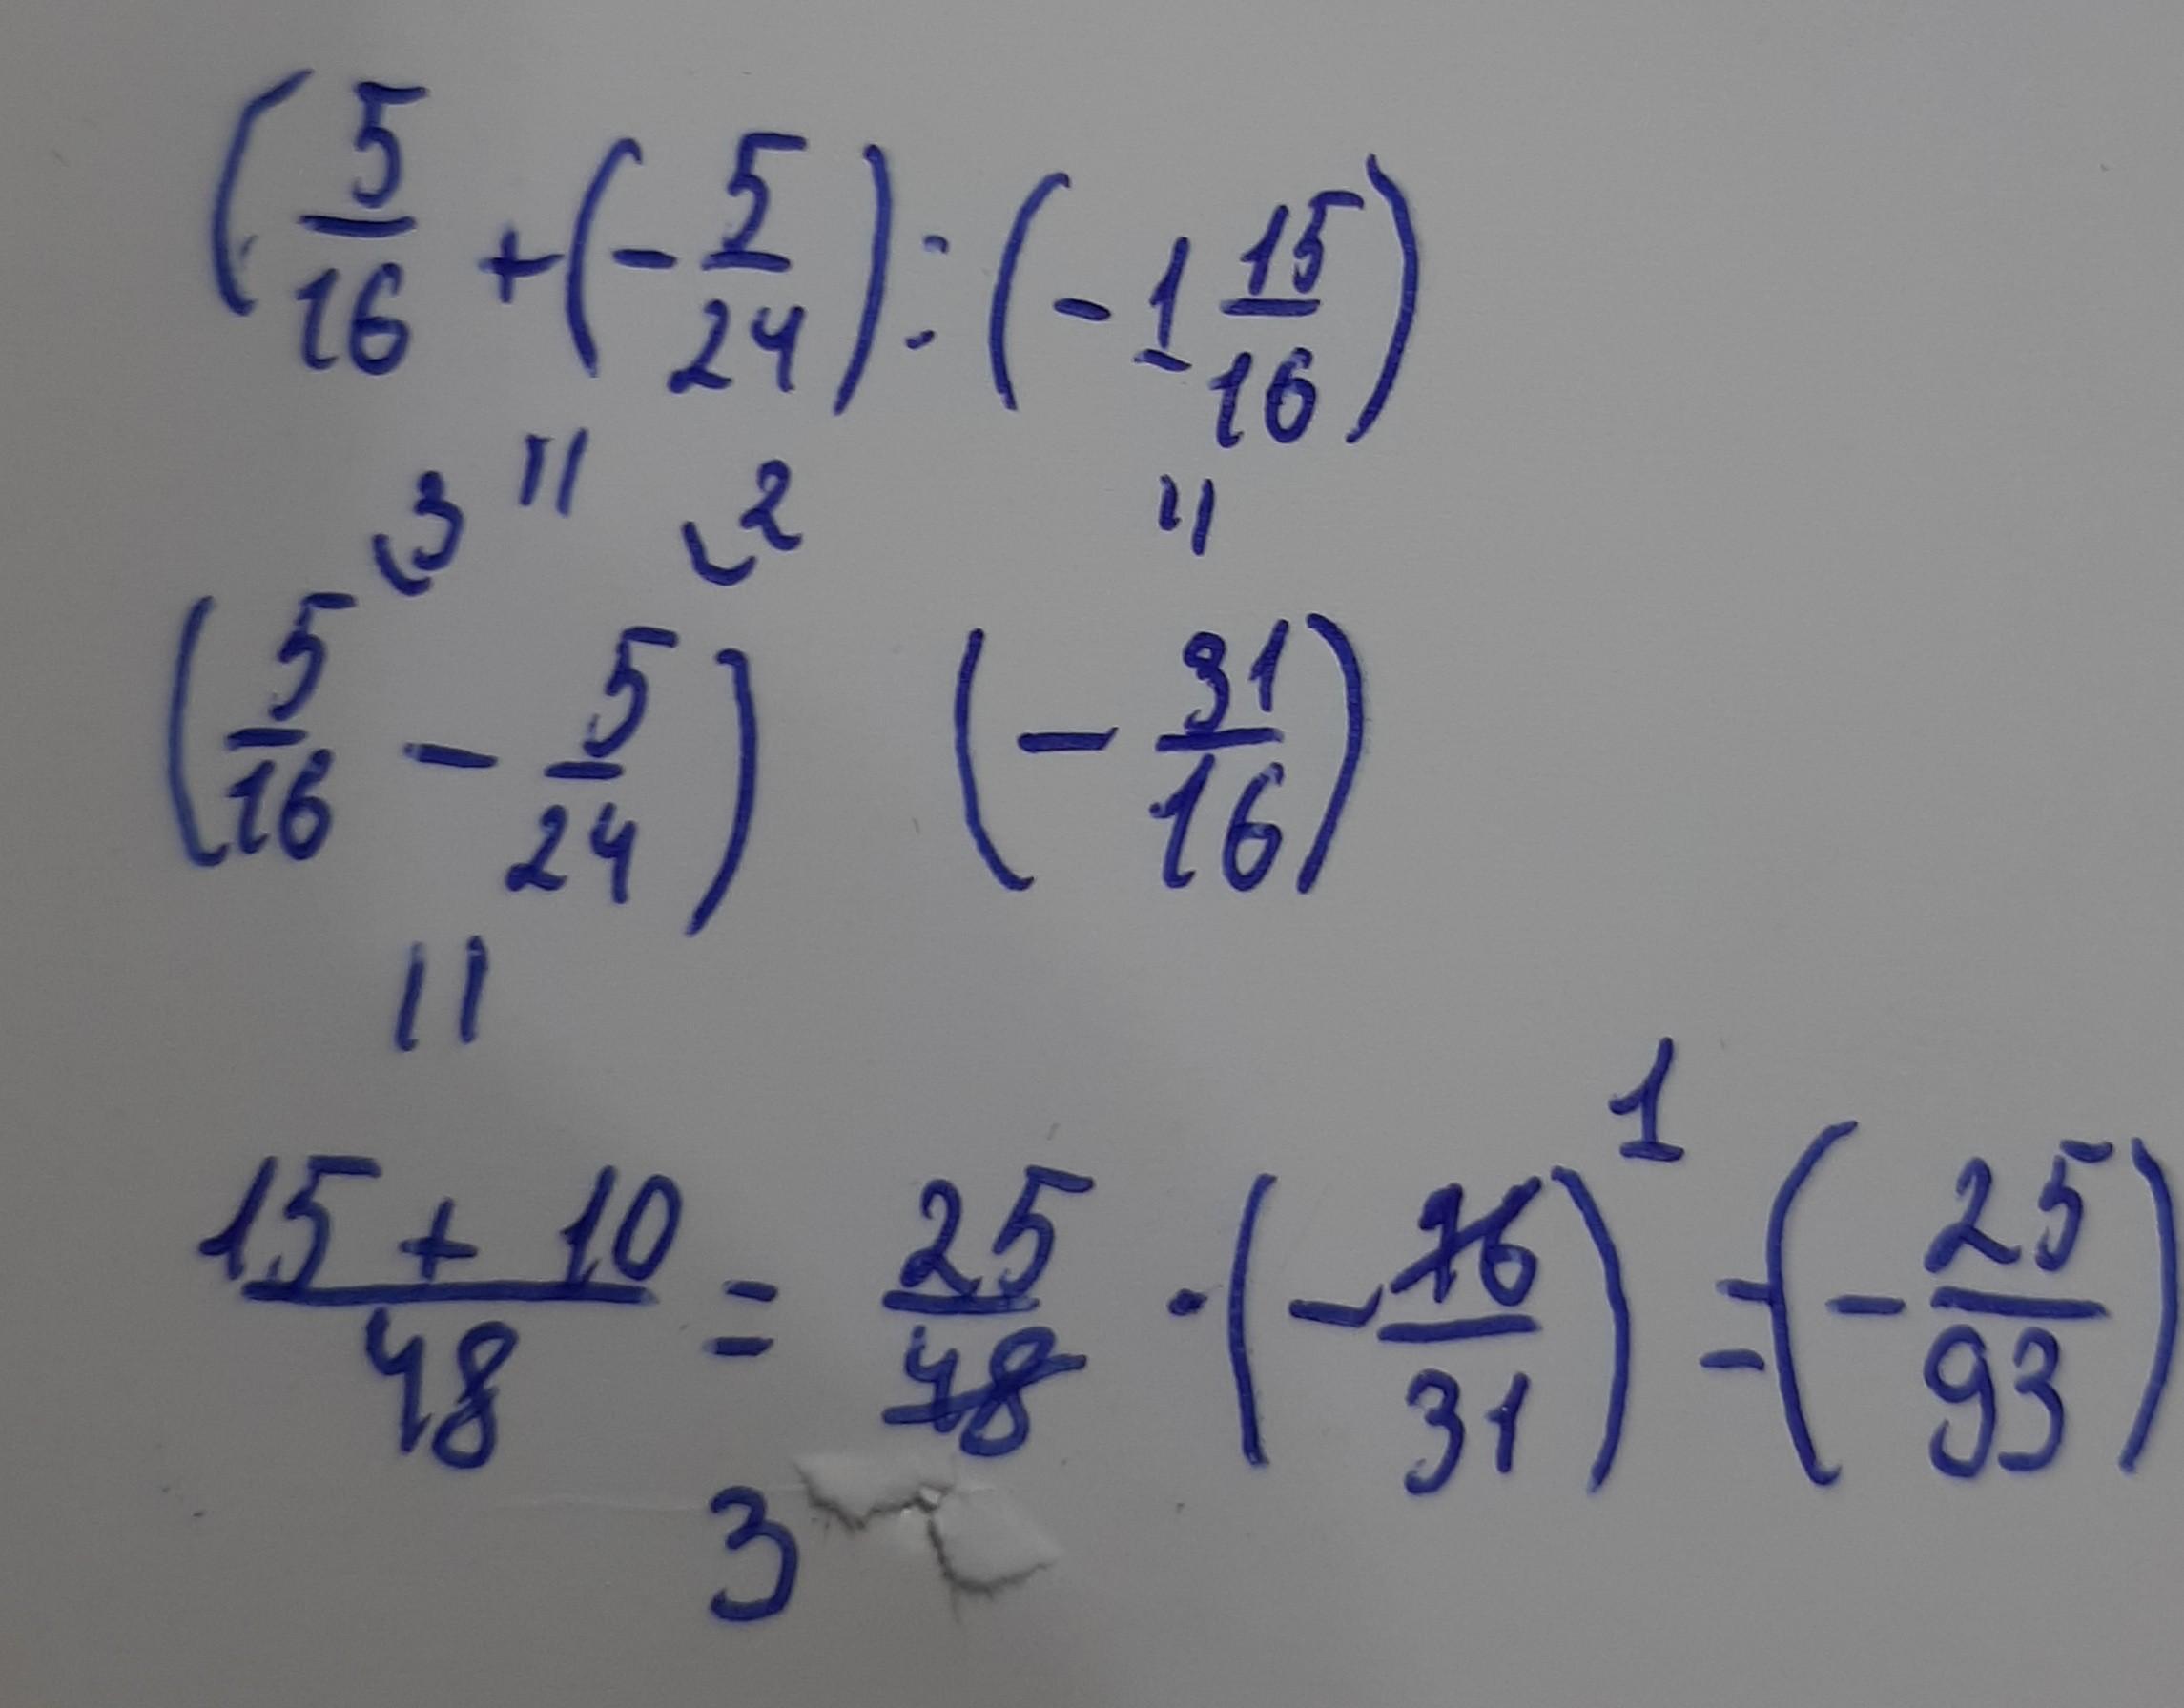 (5/16 + (- 5/24) : (- 1 15/16)
3 || 2 ||
(5/16 - 5/24) (- 31/16)
||
1
15 + 10/48 = 25/48 · (- 16/31) = (- 25/93)
3